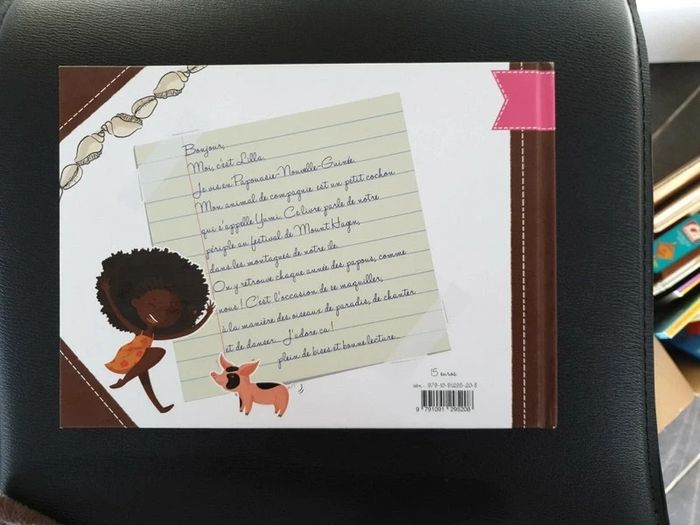 Bonjour,
Moi, c'est Lilla.
Je vis en Papouasie-Nouvelle-Guinée.
Mon animal de compagnie est un petit cochon
qui s'appelle Yumi. Ce livre parle de notre
périple au festival de Mount Hagn,
dans les montagnes de notre île.
On y retrouve chaque année des papous, comme
nous ! C'est l'occasion de se maquiller,
à la manière des oiseaux de paradis, de chanter
et de danser... J'adore ça !
plein de bises et bonne lecture
15 euros
9 791091 295208